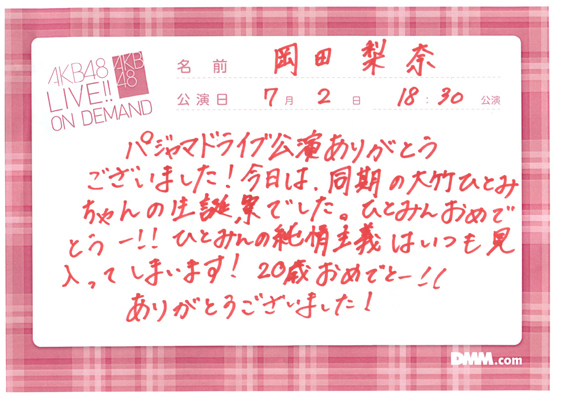 AKB48
LIVE!!
ON DEMAND
AKB
48
名前 岡田梨奈
公演日 7月2日 18:30公演
パジャマドライブ公演ありがとう
ございました!今日は、同期の大竹ひとみ
ちゃんの生誕祭でした。ひとみんおめで
とうー!!ひとみんの純情主義はいつも見
入ってしまいます!20歳おめでとー!!
ありがとうございました!
DMM.com